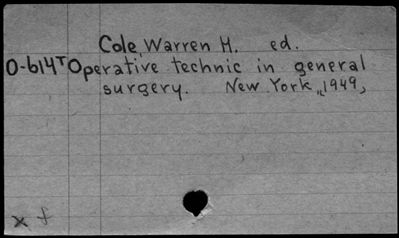 Cole, Warren H. ed.
O-614 Operative technic in general
surgery. New York, 1949,
x f